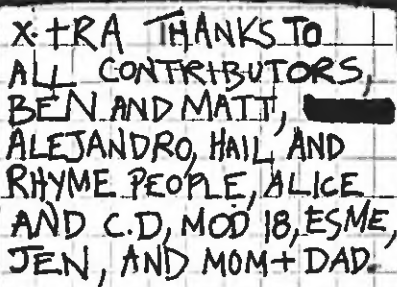 X·TRA THANKS TO
ALL CONTRIBUTORS,
BEN AND MATT,
ALEJANDRO, HAIL AND
RHYME PEOPLE, ALICE
AND C.D, MOD 18, ESME,
JEN, AND MOM + DAD.